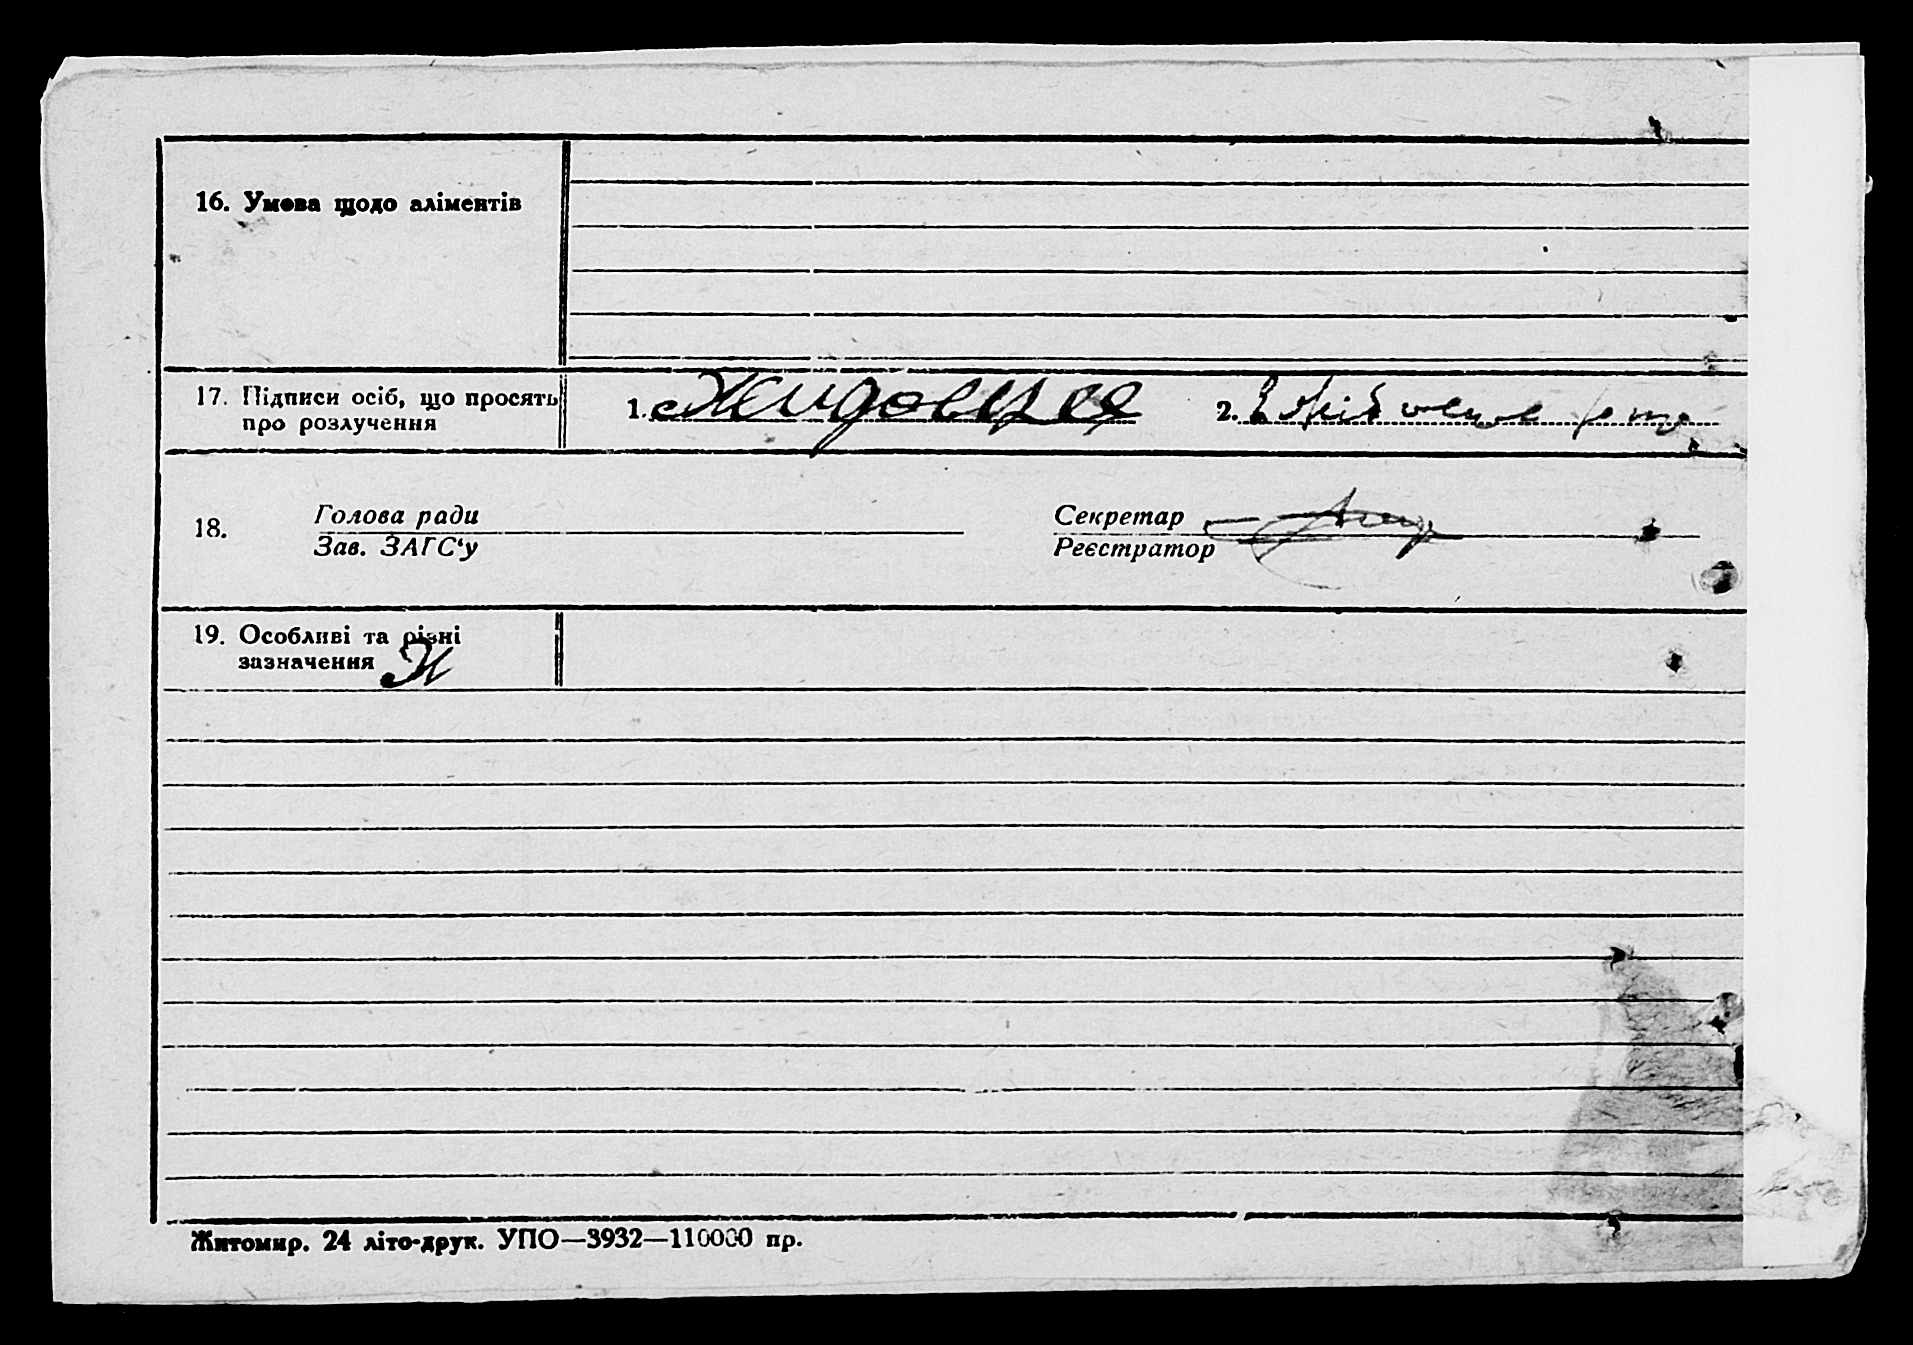 16. Умова щодо аліментів
17. Підписи осіб, що просять
про розлучення
1. 2.
18. Голова ради
Зав. ЗАГС‘у
Секретар
Реєстратор
19. Особливі та різні
зазначення
Житомир. 24 літо-друк. УПО—3932—110000 пр.